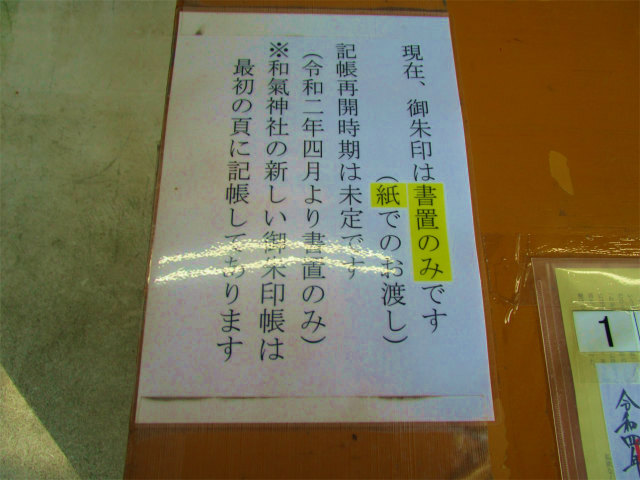 現在、御朱印は書置のみです
（紙でのお渡し）
記帳再開時期は未定です
（令和二年四月より書置のみ）
※和氣神社の新しい御朱印帳は
最初の頁に記帳してあります
1
令和四年